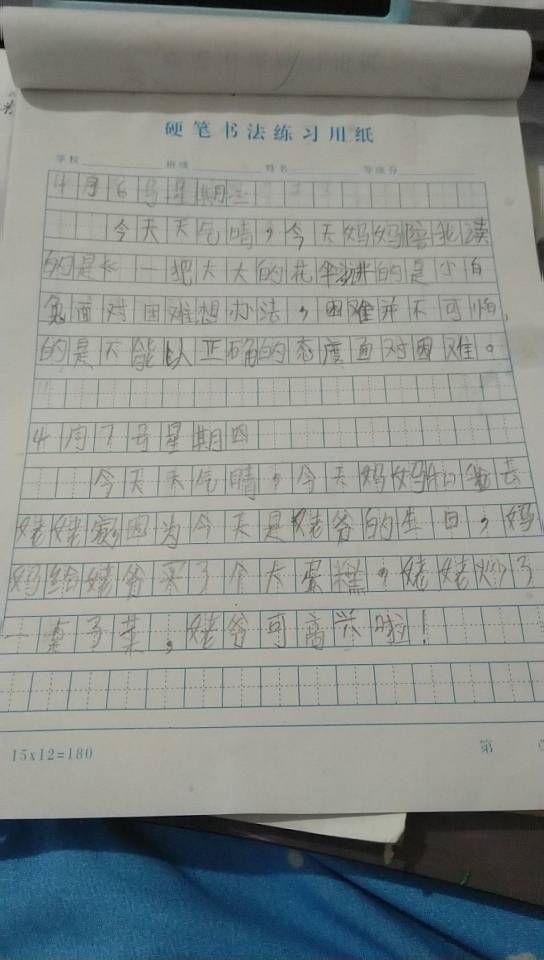 硬笔书法练习用纸
学校 班级 姓名 等级分
4月6号星期三
今天天气晴,今天妈妈陪我读
的是长一把大大的花伞讲的是小白
兔面对困难想办法,困难并不可怕,
的是不能以正确的态度面对困难。
4月7号星期四
今天天气晴,今天妈妈和我去
姥姥家因为今天是姥爷的生日,妈
妈给姥爷买了个大蛋糕,姥姥炒了
一桌子菜,姥爷可高兴啦!
15x12=180 第